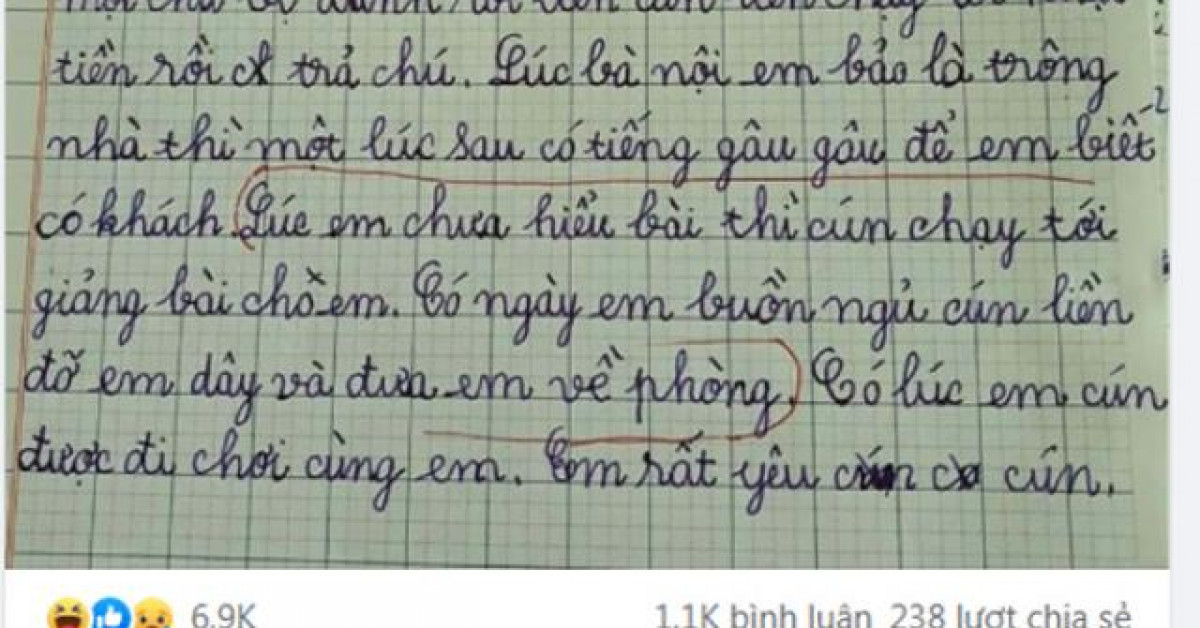 tiền rồi trả chú. Lúc bà nội em bảo là trông
nhà thì một lúc sau có tiếng gâu gâu để em biết
có khách. Lúc em chưa hiểu bài thì cún chạy tới
giảng bài cho em. Có ngày em buồn ngủ cún liền
đỡ em dây và đưa em về phòng. Có lúc em cún
được đi chơi cùng em. Em rất yêu cún.
6,9K 1.1K bình luận 238 lượt chia sẻ